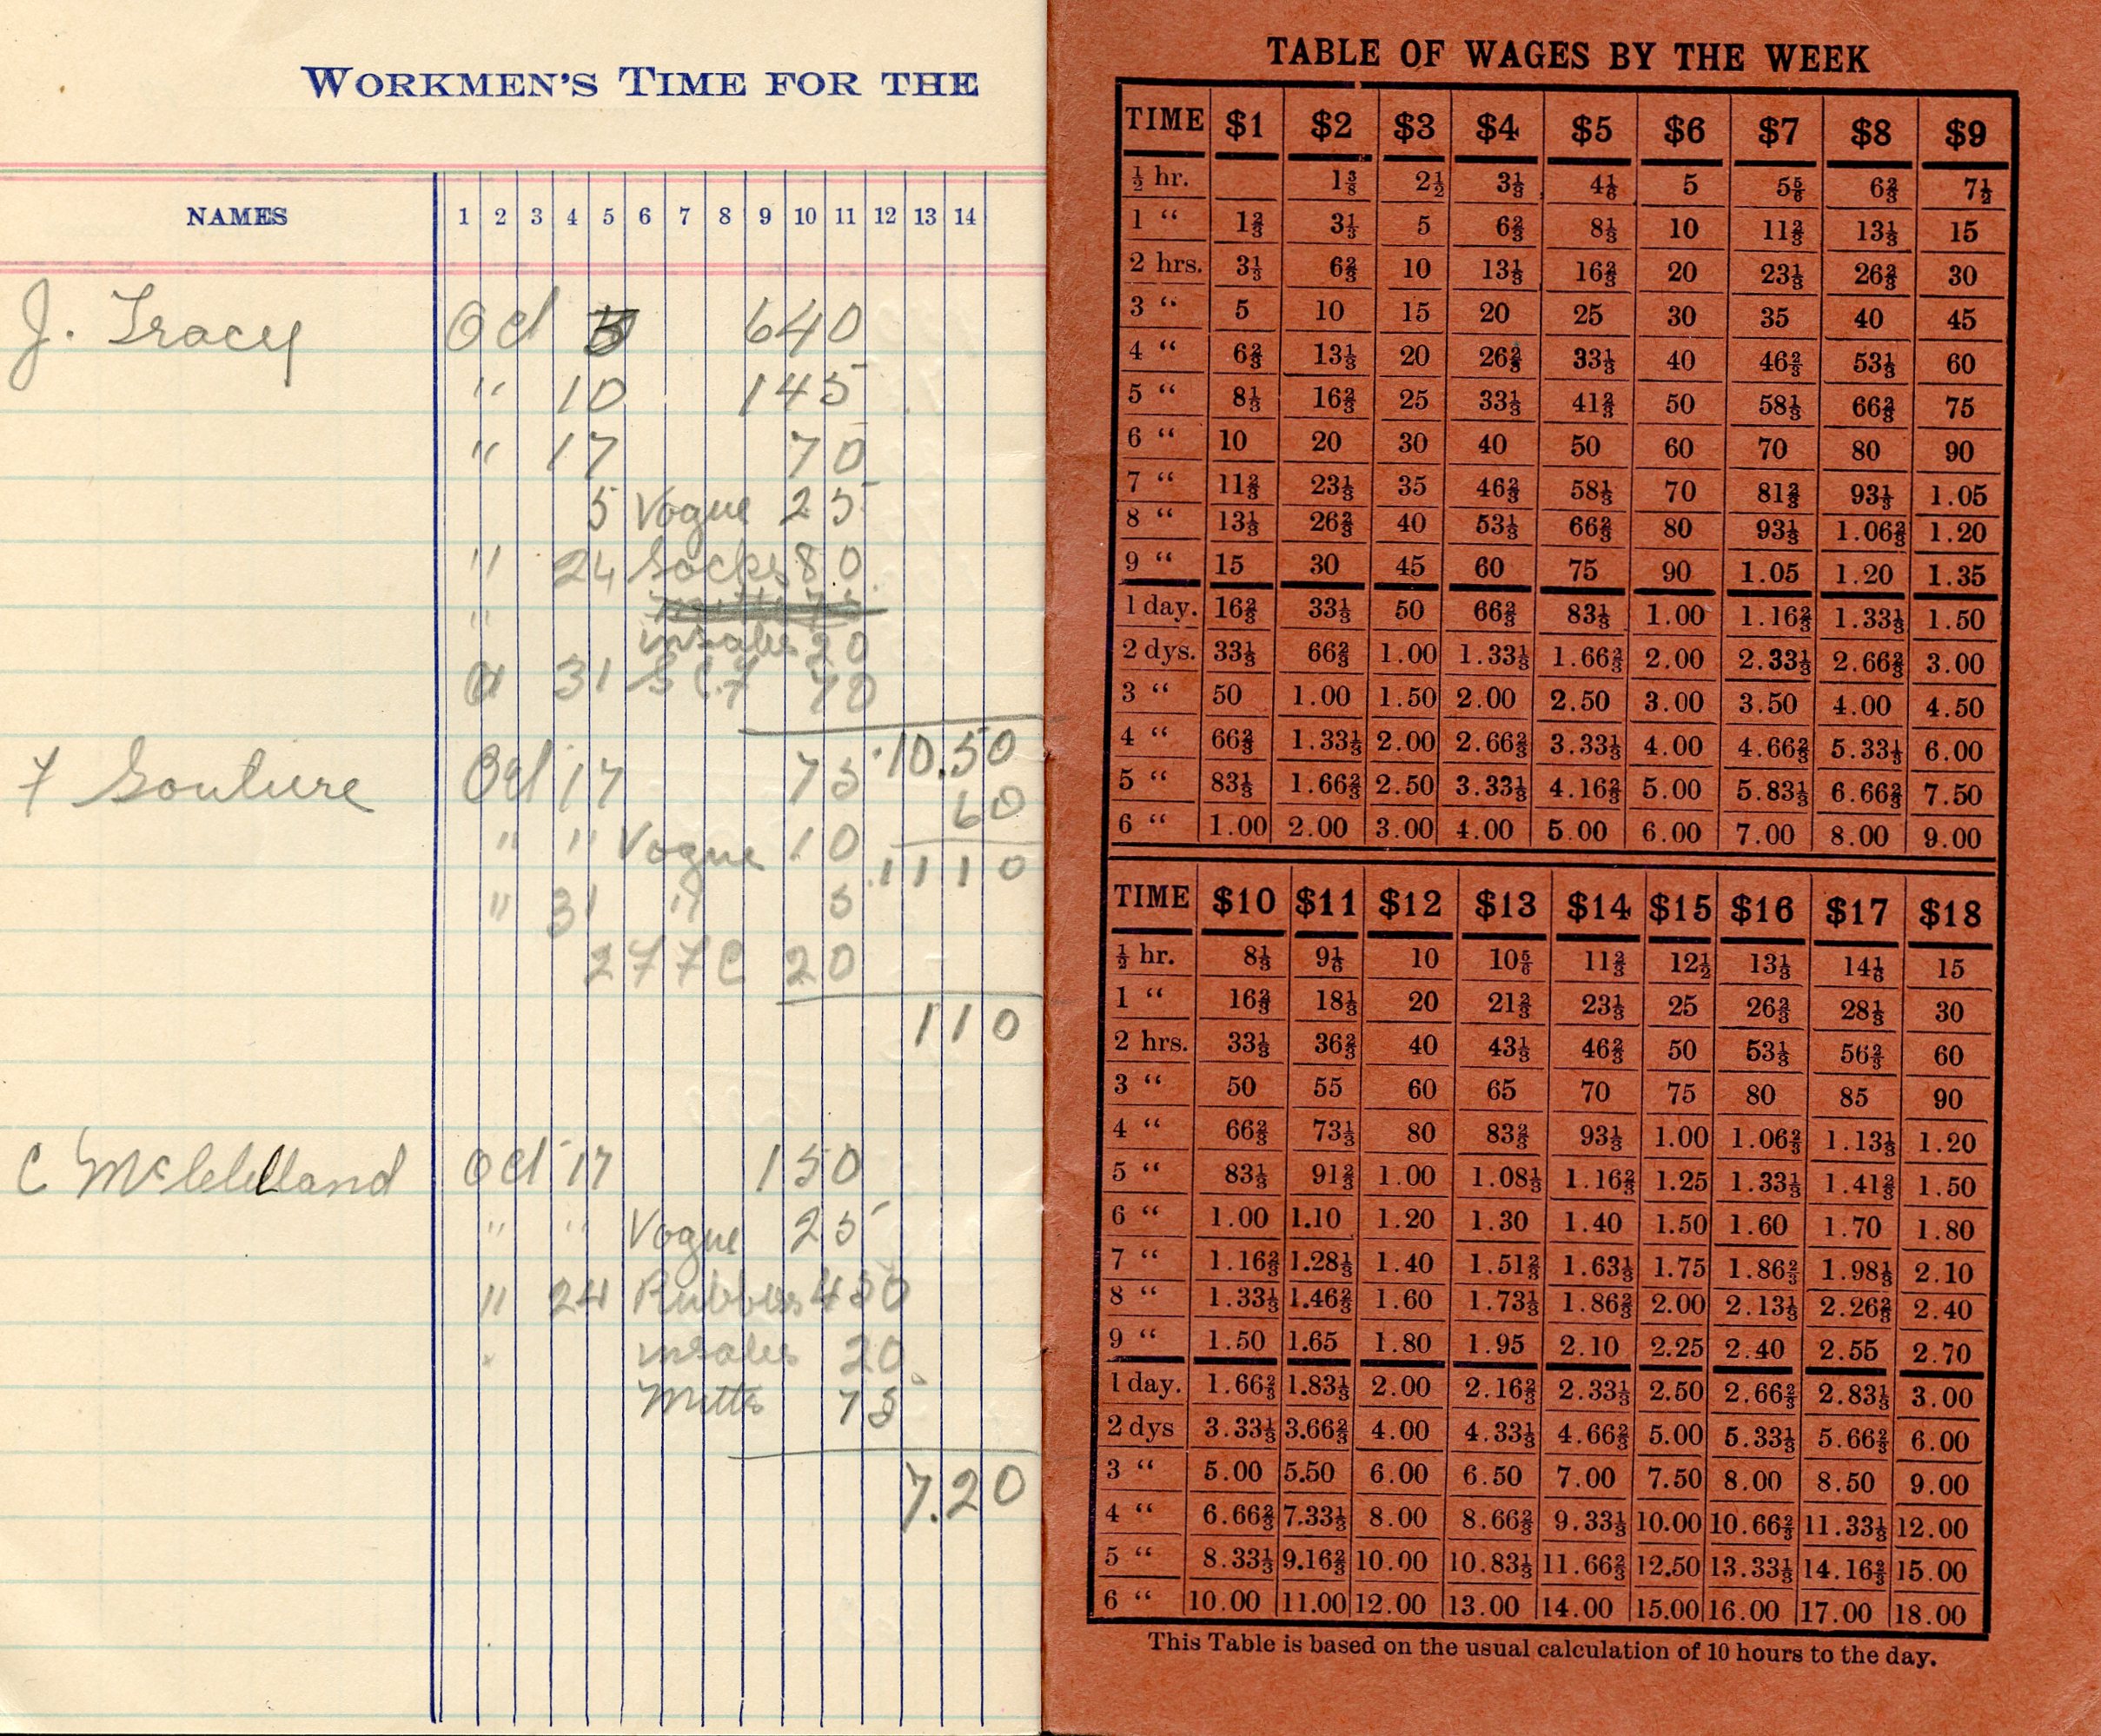 WORKMEN'S TIME FOR THE
NAMES 1 2 3 4 5 6 7 8 9 10 11 12 13 14
J. Tracy Oct 640
" 10 145
" 17 70
5 Vogue 25
" 24 Socks 80
"
insoles 20
31 70
10.50
F Oct 17 75
60
" " Vogue 10
1110
" 31 " 5
20
110
C McClelland Oct 17 150
" " Vogue 25
" 24 Rubbers 450
" insoles 20
Mitts 75
7.20
TABLE OF WAGES BY THE WEEK
TIME $1 $2 $3 $4 $5 $6 $7 $8 $9
½ hr. 1⅜ 2½ 3⅓ 4⅙ 5 5⅚ 6⅔ 7½
1 “ 1⅔ 3⅓ 5 6⅔ 8⅓ 10 11⅔ 13⅓ 15
2 hrs. 3⅓ 6⅔ 10 13⅓ 16⅔ 20 23⅓ 26⅔ 30
3 “ 5 10 15 20 25 30 35 40 45
4 “ 6⅔ 13⅓ 20 26⅔ 33⅓ 40 46⅔ 53⅓ 60
5 “ 8⅓ 16⅔ 25 33⅓ 41⅔ 50 58⅓ 66⅔ 75
6 “ 10 20 30 40 50 60 70 80 90
7 “ 11⅔ 23⅓ 35 46⅔ 58⅓ 70 81⅔ 93⅓ 1.05
8 “ 13⅓ 26⅔ 40 53⅓ 66⅔ 80 93⅓ 1.06⅔ 1.20
9 “ 15 30 45 60 75 90 1.05 1.20 1.35
1 day. 16⅔ 33⅓ 50 66⅔ 83⅓ 1.00 1.16⅔ 1.33⅓ 1.50
2 dys. 33⅓ 66⅔ 1.00 1.33⅓ 1.66⅔ 2.00 2.33⅓ 2.66⅔ 3.00
3 “ 50 1.00 1.50 2.00 2.50 3.00 3.50 4.00 4.50
4 “ 66⅔ 1.33⅓ 2.00 2.66⅔ 3.33⅓ 4.00 4.66⅔ 5.33⅓ 6.00
5 “ 83⅓ 1.66⅔ 2.50 3.33⅓ 4.16⅔ 5.00 5.83⅓ 6.66⅔ 7.50
6 “ 1.00 2.00 3.00 4.00 5.00 6.00 7.00 8.00 9.00
TIME $10 $11 $12 $13 $14 $15 $16 $17 $18
½ hr. 8⅓ 9⅙ 10 10⅚ 11⅔ 12½ 13⅓ 14⅙ 15
1 “ 16⅔ 18⅓ 20 21⅔ 23⅓ 25 26⅔ 28⅓ 30
2 hrs. 33⅓ 36⅔ 40 43⅓ 46⅔ 50 53⅓ 56⅔ 60
3 “ 50 55 60 65 70 75 80 85 90
4 “ 66⅔ 73⅓ 80 83⅔ 93⅓ 1.00 1.06⅔ 1.13⅓ 1.20
5 “ 83⅓ 91⅔ 1.00 1.08⅓ 1.16⅔ 1.25 1.33⅓ 1.41⅔ 1.50
6 “ 1.00 1.10 1.20 1.30 1.40 1.50 1.60 1.70 1.80
7 “ 1.16⅔ 1.28⅓ 1.40 1.51⅔ 1.63⅓ 1.75 1.86⅔ 1.98⅓ 2.10
8 “ 1.33⅓ 1.46⅔ 1.60 1.73⅓ 1.86⅔ 2.00 2.13⅓ 2.26⅔ 2.40
9 “ 1.50 1.65 1.80 1.95 2.10 2.25 2.40 2.55 2.70
1 day. 1.66⅔ 1.83⅓ 2.00 2.16⅔ 2.33⅓ 2.50 2.66⅔ 2.83⅓ 3.00
2 dys 3.33⅓ 3.66⅔ 4.00 4.33⅓ 4.66⅔ 5.00 5.33⅓ 5.66⅔ 6.00
3 “ 5.00 5.50 6.00 6.50 7.00 7.50 8.00 8.50 9.00
4 “ 6.66⅔ 7.33⅓ 8.00 8.66⅔ 9.33⅓ 10.00 10.66⅔ 11.33⅓ 12.00
5 “ 8.33⅓ 9.16⅔ 10.00 10.83⅓ 11.66⅔ 12.50 13.33⅓ 14.16⅔ 15.00
6 “ 10.00 11.00 12.00 13.00 14.00 15.00 16.00 17.00 18.00
This Table is based on the usual calculation of 10 hours to the day.